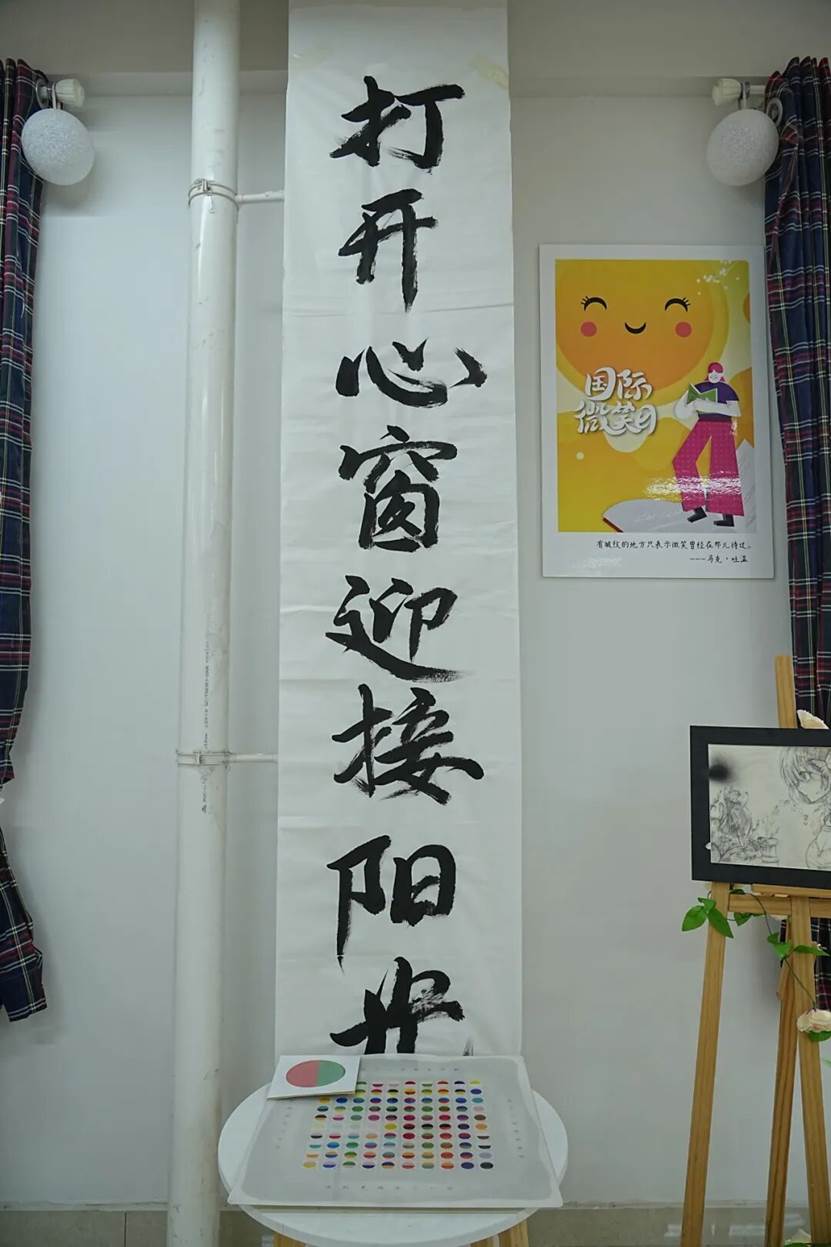 打开心窗迎接阳光
国际
微笑日
有皱纹的地方只表示微笑曾经在那儿待过。
---马克·吐温